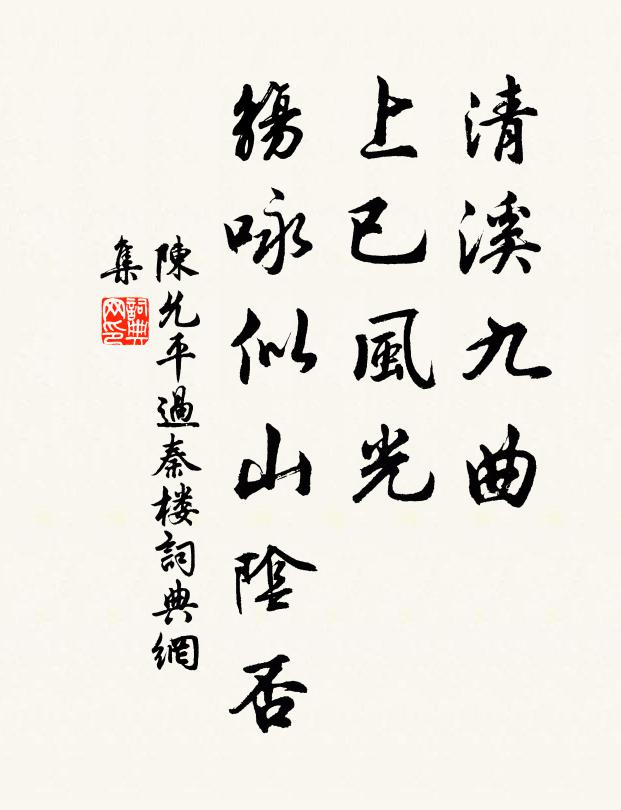 清溪九曲
上巳風光
觴咏似山陰否
陳允平過秦楼詞典網
集
詞典
网印